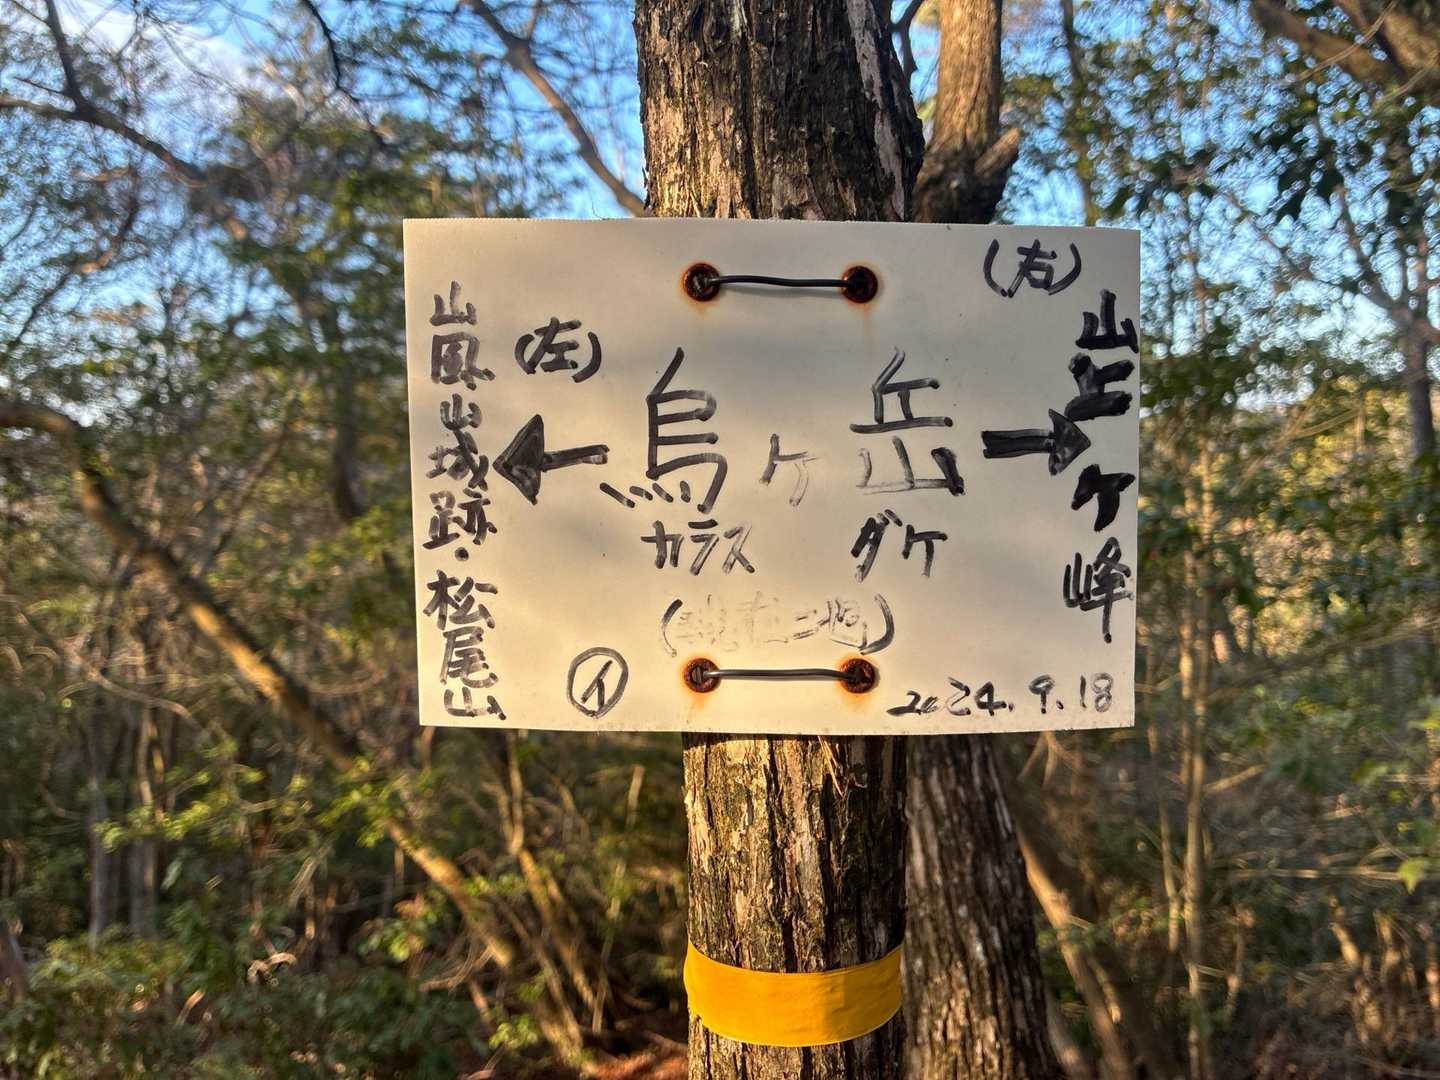 (右)
山上ケ峰
→
烏ヶ岳
カラス ダケ
(左)
←
嵐山城跡・松尾山
㋑
2024.9.18